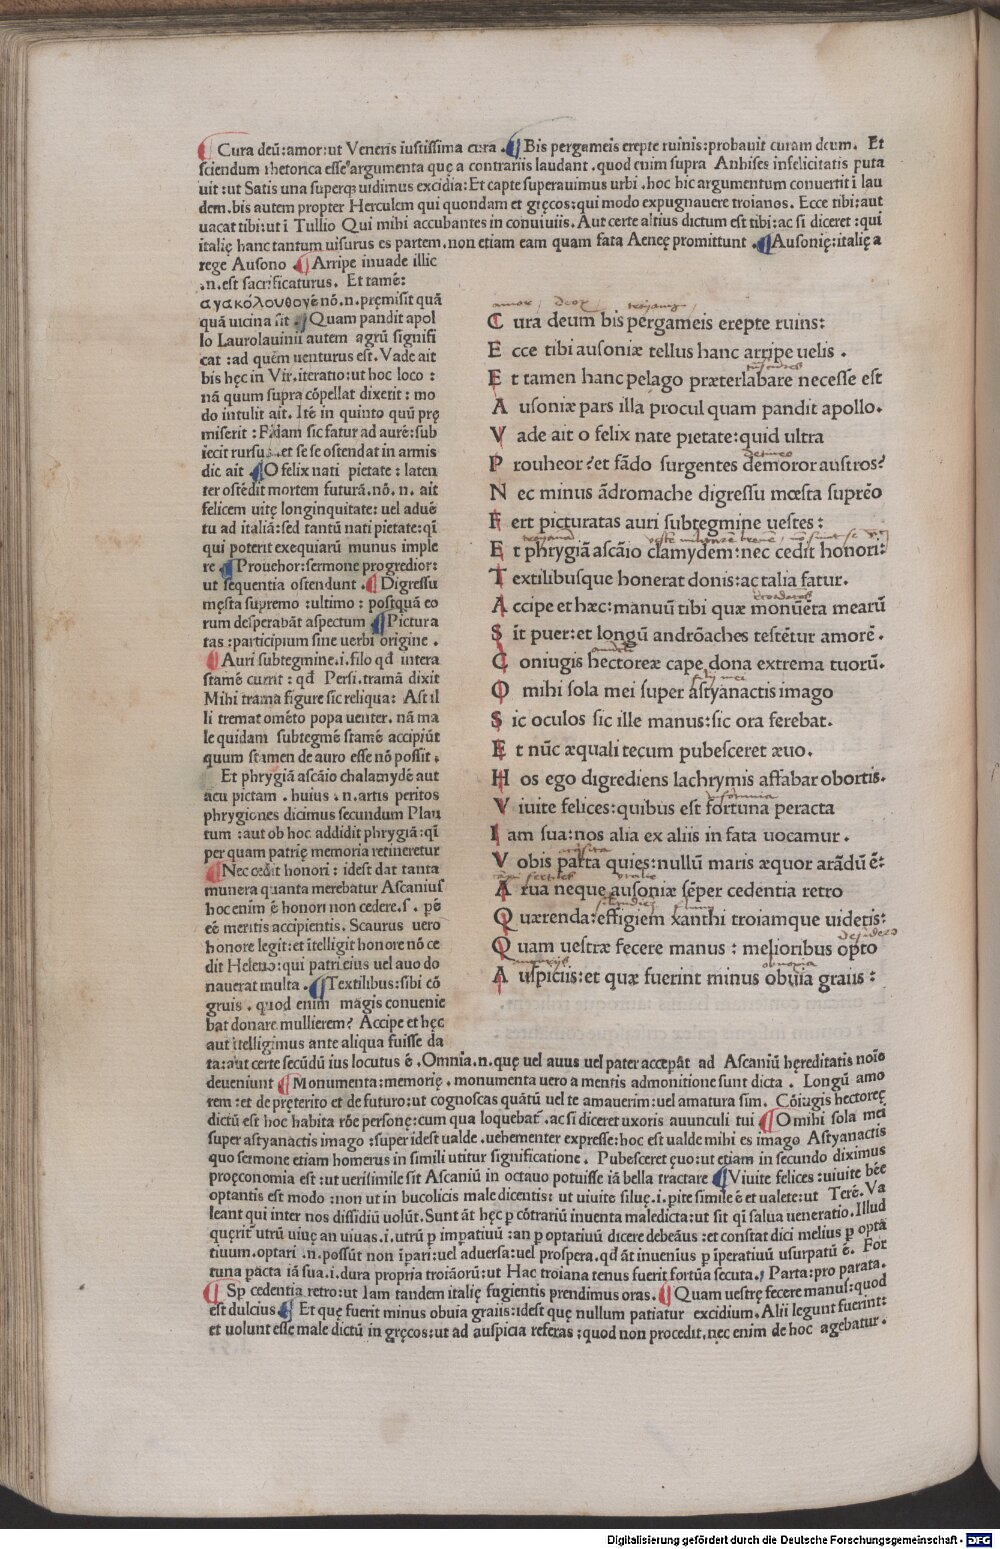 Cura deū:amor:ut Veneris iustissima cura . Bis pergameis erepte ruinis:probauit curam deum. Et
sciendum rhetorica esse argumenta quę a contrariis laudant .quod enim supra Anhises infelicitatis puta
uit :ut Satis una superq; uidimus excidia:Et capte superauimus urbi .hoc hic argumentum conuertit ī lau
dem.bis autem propter Herculem qui quondam et gręcos:qui modo expugnauere troianos. Ecce tibi:aut
uacat tibi:ut ī Tullio Qui mihi accubantes in conuiuiis. Aut certe altius dictum est tibi:ac si diceret :qui
italię hanc tantum uisurus es partem.non etiam eam quam fata Aeneę promittunt . Ausonię:italię a
rege Ausono Arripe inuade illic
.n.est sacrificaturus. Et tamē:
αγακόλουθογē nō.n.pręmisit quā
quā uicina sit . Quam pandit apol
lo Laurolauinii autem agrū signifi
cat :ad quem uenturus est. Vade ait
bis hęc in Vir.iteratio:ut hoc loco :
nā quum supra cōpellat dixerit : mo
do intulit ait. Itē in quinto quū prę
miserit : Fidam sic fatur ad aurē:sub
iecit rursu .et se se ostendat in armis
dic ait O felix nati pietate : laten
ter ostēdit mortem futurā.nō. n. ait
felicem uitę longinquitate: uel aduē
tu ad italiā:sed tantū nati pietate:qī
qui poterit exequiarū munus imple
re Prouehor:sermone progredior:
ut sequentia ostendunt . Digressu
męsta supremo :ultimo : postquā eo
rum desperabāt aspectum Pictura
tas :participium sine uerbi origine .
Auri subtegmine.i.filo qđ intera
stamē currit : qđ Persi.tramā dixit
Mihi trama figure sic reliqua: Ast il
li tremat omēto popa uenter. nā ma
le quidam subtegmē stamē accipiūt
quum stamen de auro esse nō possit .
Et phrygiā ascāio chalamydē aut
acu pictam . huius .n.artis peritos
phrygiones dicimus secundum Plau
tum :aut ob hoc addidit phrygiā:qī
per quam patrię memoria retineretur
Nec cedit honori : idest dat tanta
munera quanta merebatur Ascanius
hoc enim ē honori non cedere.s . pē
eē meritis accipientis. Scaurus uero
honore legit:et ītelligit honore nō ce
dit Heleno:qui patri eius uel auo do
nauerat multa . Textilibus:sibi cō
gruis . quod enim magis conuenie
bat donare mullierem? Accipe et hęc
aut ītelligimus ante aliqua fuisse da
ta:aut certe secūdū ius locutus ē .Omnia.n.quę uel auus uel pater accepāt ad Ascaniū hęreditatis noīe
deueniunt Monumenta:memorię . monumenta uero a mentis admonitione sunt dicta . Longū amo
rem :et de pręterito et de futuro:ut cognoscas quātū uel te amauerim:uel amatura sim. Cōiugis hectoreę
dictū est hoc habita rōe personę:cum qua loquebat .ac si diceret uxoris auunculi tui . O mihi sola mei
super astyanactis imago :super idest ualde .uehementer expresse:hoc est ualde mihi es imago Astyanactis
quo sermone etiam homerus in simili utitur significatione . Pubesceret ęuo:ut etiam in secundo diximus
proęconomia est :ut uerisimile sit Ascaniū in octauo potuisse iā bella tractare Viuite felices :uiuite bēe
optantis est modo :non ut in bucolicis male dicentis: ut uiuite siluę.i.pite simile ē et ualete:ut Terē. Va
leant qui inter nos dissidiū uolūt. Sunt āt hęc p cōtrariū inuenta maledicta:ut sit qī salua ueneratio.Illud
quęrit utrū uiuę an uiuas.i.utrū p impatiuū :an p optatiuū dicere debeāus :et constat dici melius p opta
tiuum.optari .n.possūt non īpari:uel aduersa:uel prospera.qđ āt inuenius p īperatiuū usurpatū ē. For
tuna pacta iā sua.i.dura propria troiāorū:ut Hac troiana tenus fuerit fortūa secuta. Parta:pro parata.
Sp cedentia retro:ut Iam tandem italię fugientis prendimus oras. Quam uestrę fecere manus:quod
est dulcius Et quę fuerit minus obuia graiis:idest quę nullum patiatur excidium. Alii legunt fuerint:
et uolunt esse male dictū in gręcos:ut ad auspicia referas :quod non procedit.nec enim de hoc agebatur.
amor deoz troyanis
C ura deum bis pergameis erepte ruins:
E cce tibi ausoniæ tellus hanc arripe uelis .
E t tamen hanc pelago præterlabare necesse est
A usoniæ pars illa procul quam pandit apollo.
V ade ait o felix nate pietate:quid ultra
detineo
P rouheor?et fādo surgentes demoror austros?
N ec minus ādromache digressu mœsta suprēo
F ert picturatas auri subtegmine uestes :
troyanā
E t phrygiā ascāio clamydem:nec cedit honori:
T extilibusque honerat donis:ac talia fatur.
A ccipe et hæc:manuū tibi quæ monūēta mearū
S īt puer:et longū andrōaches testētur amorē .
C oniugis hectoreæ cape dona extrema tuorū.
filij mei
O mihi sola mei super astyanactis imago
S ic oculos sic ille manus:sic ora ferebat.
E t nūc æquali tecum pubesceret æuo.
H os ego digrediens lachrymis affabar obortis.
V iuite felices:quibus est fortuna peracta
I am sua:nos alia ex aliis in fata uocamur .
V obis parta quies:nullū maris æquor arādū ē:
A rua neque ausoniæ sēper cedentia retro
Q uærenda:effigiem xanthi troiamque uidetis:
desidero
Q uam uestræ fecere manus : melioribus opto
A uspiciis:et quæ fuerint minus obuia graiis :
Digitalisierung gefördert durch die Deutsche Forschungsgemeinschaft - DFG